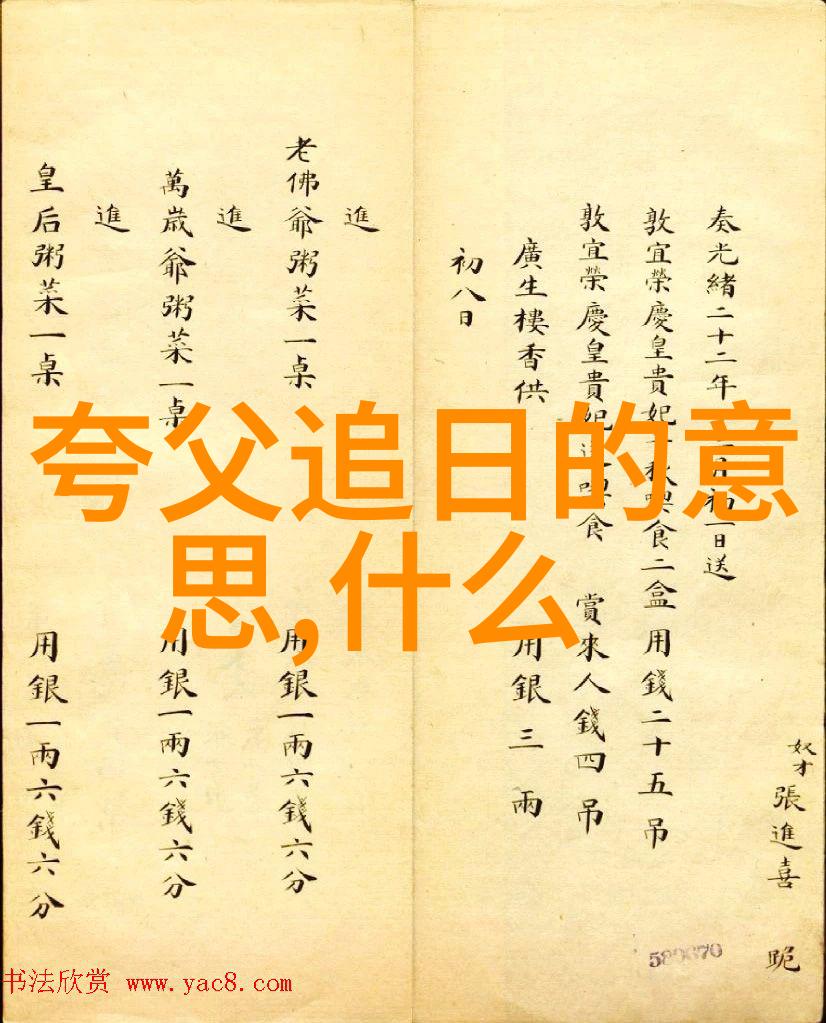 夸父追日的意
思,什么
奴才張進喜 跪
奏光緒二十二年月初一日送
敦宜榮慶皇貴妃秋喫食二盒用錢二十五吊
敦宜榮慶皇貴妃進喫食 賞來人錢四吊
廣生樓香供 用銀三兩
初八日
進
老佛爺粥菜一桌 用銀一兩六錢六分
進
萬歲爺粥菜一桌 用銀一兩六錢六分
進
皇后粥菜一桌 用銀一兩六錢六分
书法欣赏 www.yac8.com